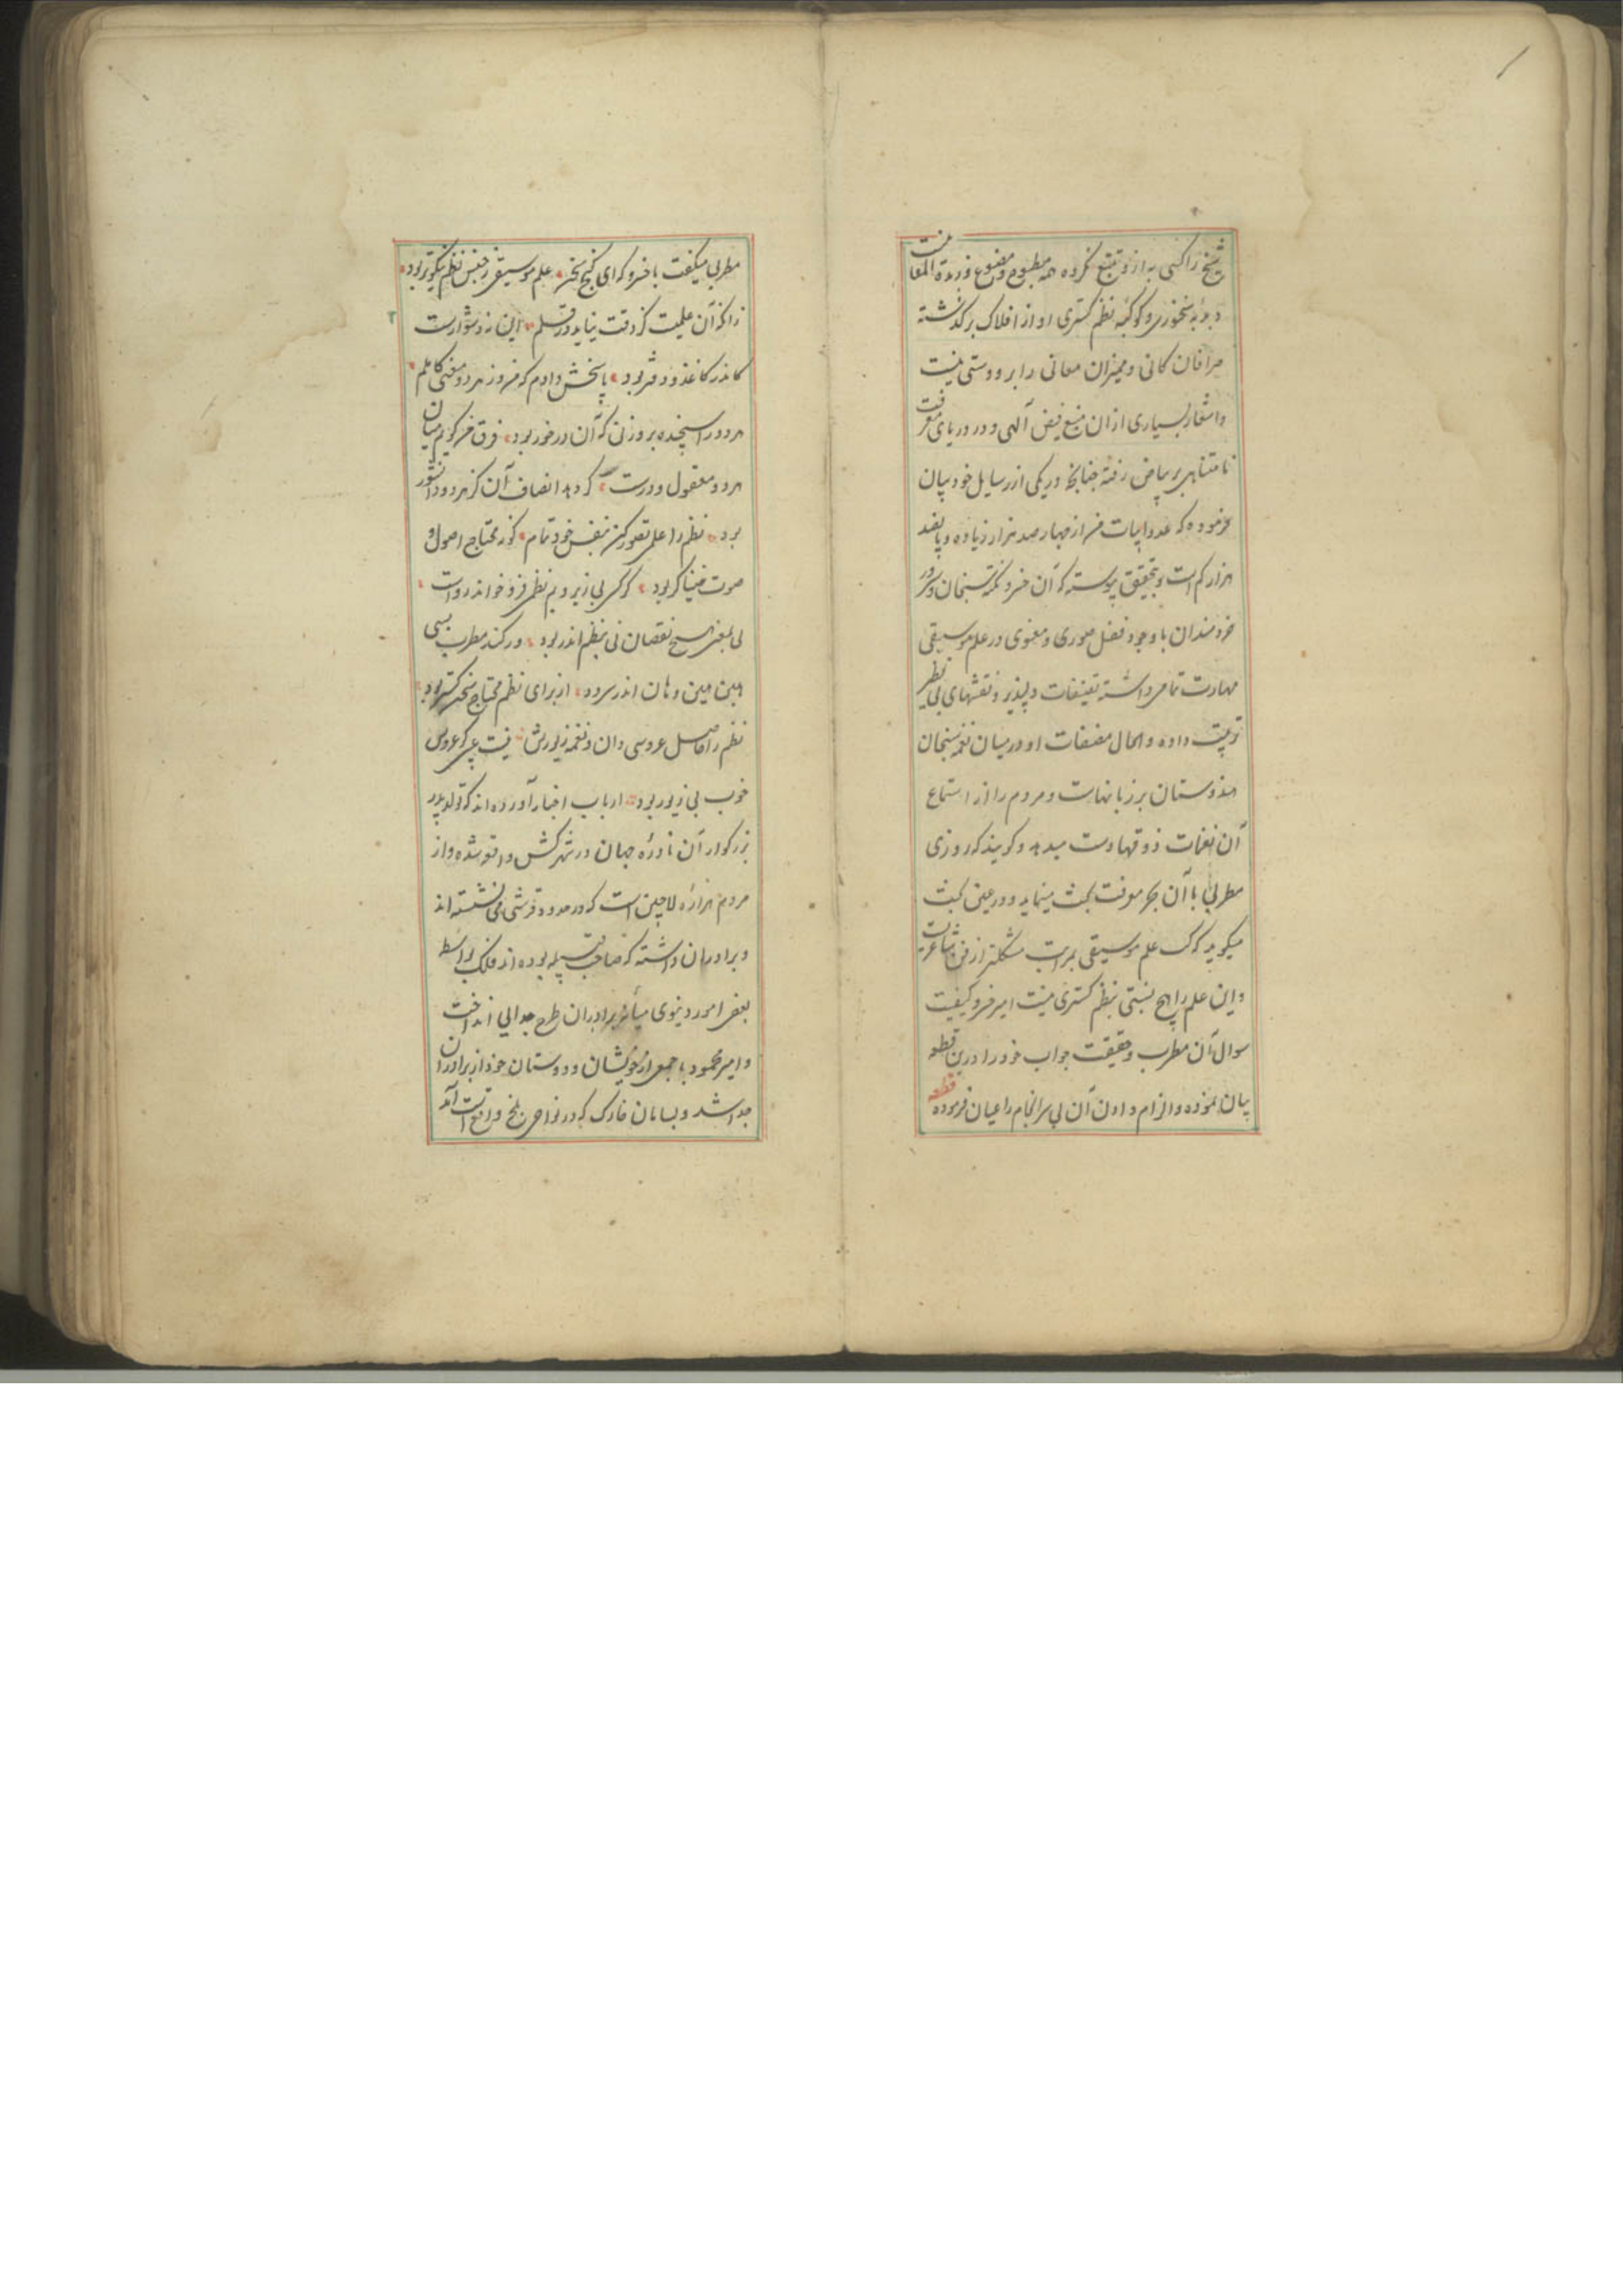 شیخ را کسی به ازو تتبع نکرده همه مطبوع و مصنوع و زبدة المعا نیست
دبدبهٔ سخنوری و کوکبهٔ نظم گستری او از افلاک برگذشته
صرافان کانی و ممیزان معانی را برو دستی نیست
و اشعار بسیاری ازان منبع فیض آلهی و در دریای معرفت
نامتناهی بر بیاض رفته چنانچه در یکی از رسایل خود بیان
فرموده که عدد ابیات من از چهار صد هزار زیاده و پانصد
هزار کم است و بتحقیق پیوسته که آن خسرو نکته سنجان و سرور
خردمندان با وجود فضل صوری و معنوی در علم موسیقی
مهارت تمام داشته تصنیفات دلپذیر و نقشهای بی نظیر
ترتیب داده و الحال مصنفات او در میان نغمه سنجان
هندوستان بر زبانهاست و مردم را از استماع
آن نغمات ذوقها دست میدهد و گویند که روزی
مطربی با آن بحر معرفت بحث مینماید و در عین بحث
میگوید که علم موسیقی بمراتب مشکلتر از فن شاعریت
و این علم را هیچ نسبتی بنظم گستری نیست امیر خسرو کیفیت
سوال آن مطرب و حقیقت جواب خود را درین قطعه
بیان نموده و الزام دادن آن بی سرانجام را عیان فرموده قطعه
مطربی میگفت با خسرو که ای گنج سخن علم موسیقی ز جنس نظم نیکوتر بود
زانکه آن علمیت کز دقت نیاید در قلم این نه دشوارست
کاندر کاغذ و دفتر بود پاسخش دادم که من در هر دو معنی کاملم
هر دو را سنجیده بر وزنی که آن درخور بود فرق من گویم میان
هر دو معقول و درست گر دهد انصاف آن کز هر دو دانشور
بود نظم را علمی تصور کن بنفس خود تمام کو نه محتاج اصول و
صوت خنیاگر بود گر کسی بی زیر و بم نظمی فرو خواند رواست
نی بمعنی هیچ نقصان نی بنظم اندر بود ور کند مطرب بسی
هین هین و هان هان اندر سرود از برای نظم محتاج سخن گستر بود
نظم را حاصل عروسی دان و نغمه زیورش نیست عیبی گر عروس
خوب بی زیور بود ارباب اخبار آورده اند که تولد پدر
بزرگوار آن نادرهٔ جهان در شهر کش واقع شده و از
مردم هزارهٔ لاچین است که در حدود قرشی می نشسته اند
و برادران داشته که صاحب قبیله بوده اند فلک بواسطه
بعضی امور دنیوی میانهٔ برادران طرح جدایی انداخت
و امیر محمود با جمعی از خویشان و دوستان خود از برادران
جدا شد و بسامان خارک که در نواحی بلخ واقع است آمد